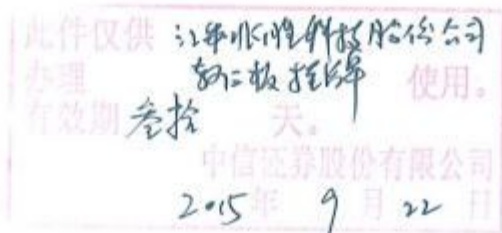 此件仅供 江苏兆胜科技股份公司
办理 新三板挂牌 使用。
有效期 叁拾 天。
中信证券股份有限公司
2015年 9月22日